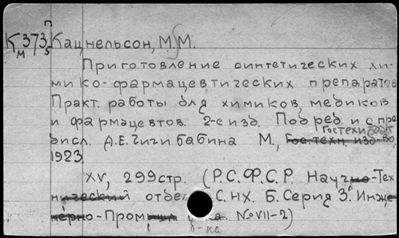 К 373 п Кацнельсон, М. М.
м 5
Приготовление синтетических хи-
мико-фармацевтических препаратов
Практ. работы для химиков, медиков
и фармацевтов. 2-е изд. Под ред. и с пре
Гостехиздат
дисл. А.Е. Чичибабина М, Гос. техн. изд-во,
1923
XV, 299 стр. (Р.С.Ф.С.Р. Научно-Тех
нический отдел С.НХ. Б. Серия 3. Инже
нерно-Пром №VII-2)